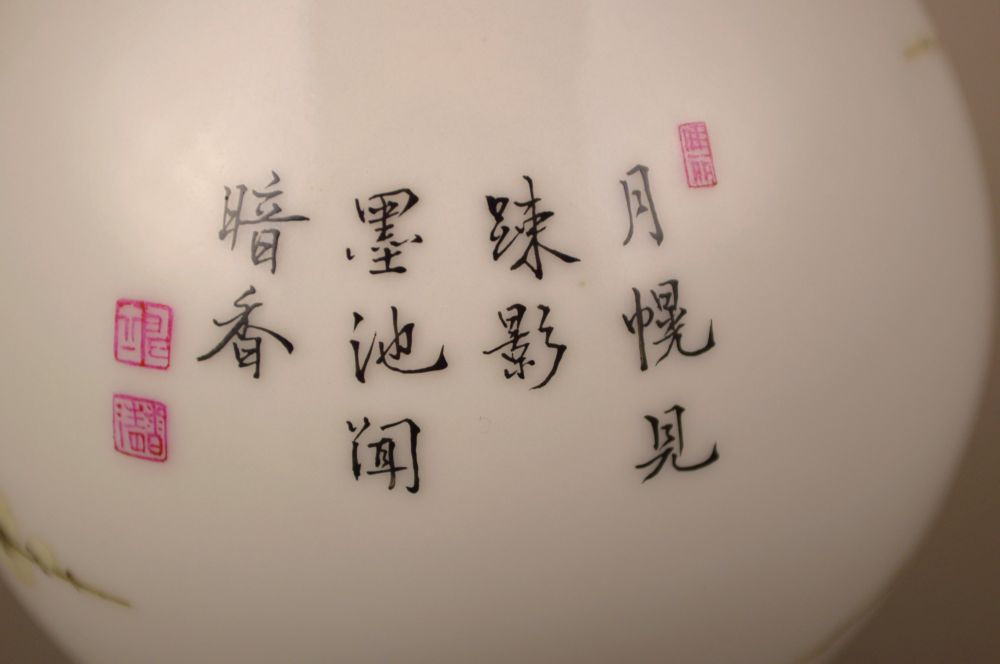 月幌見
踈影
墨池聞
暗香